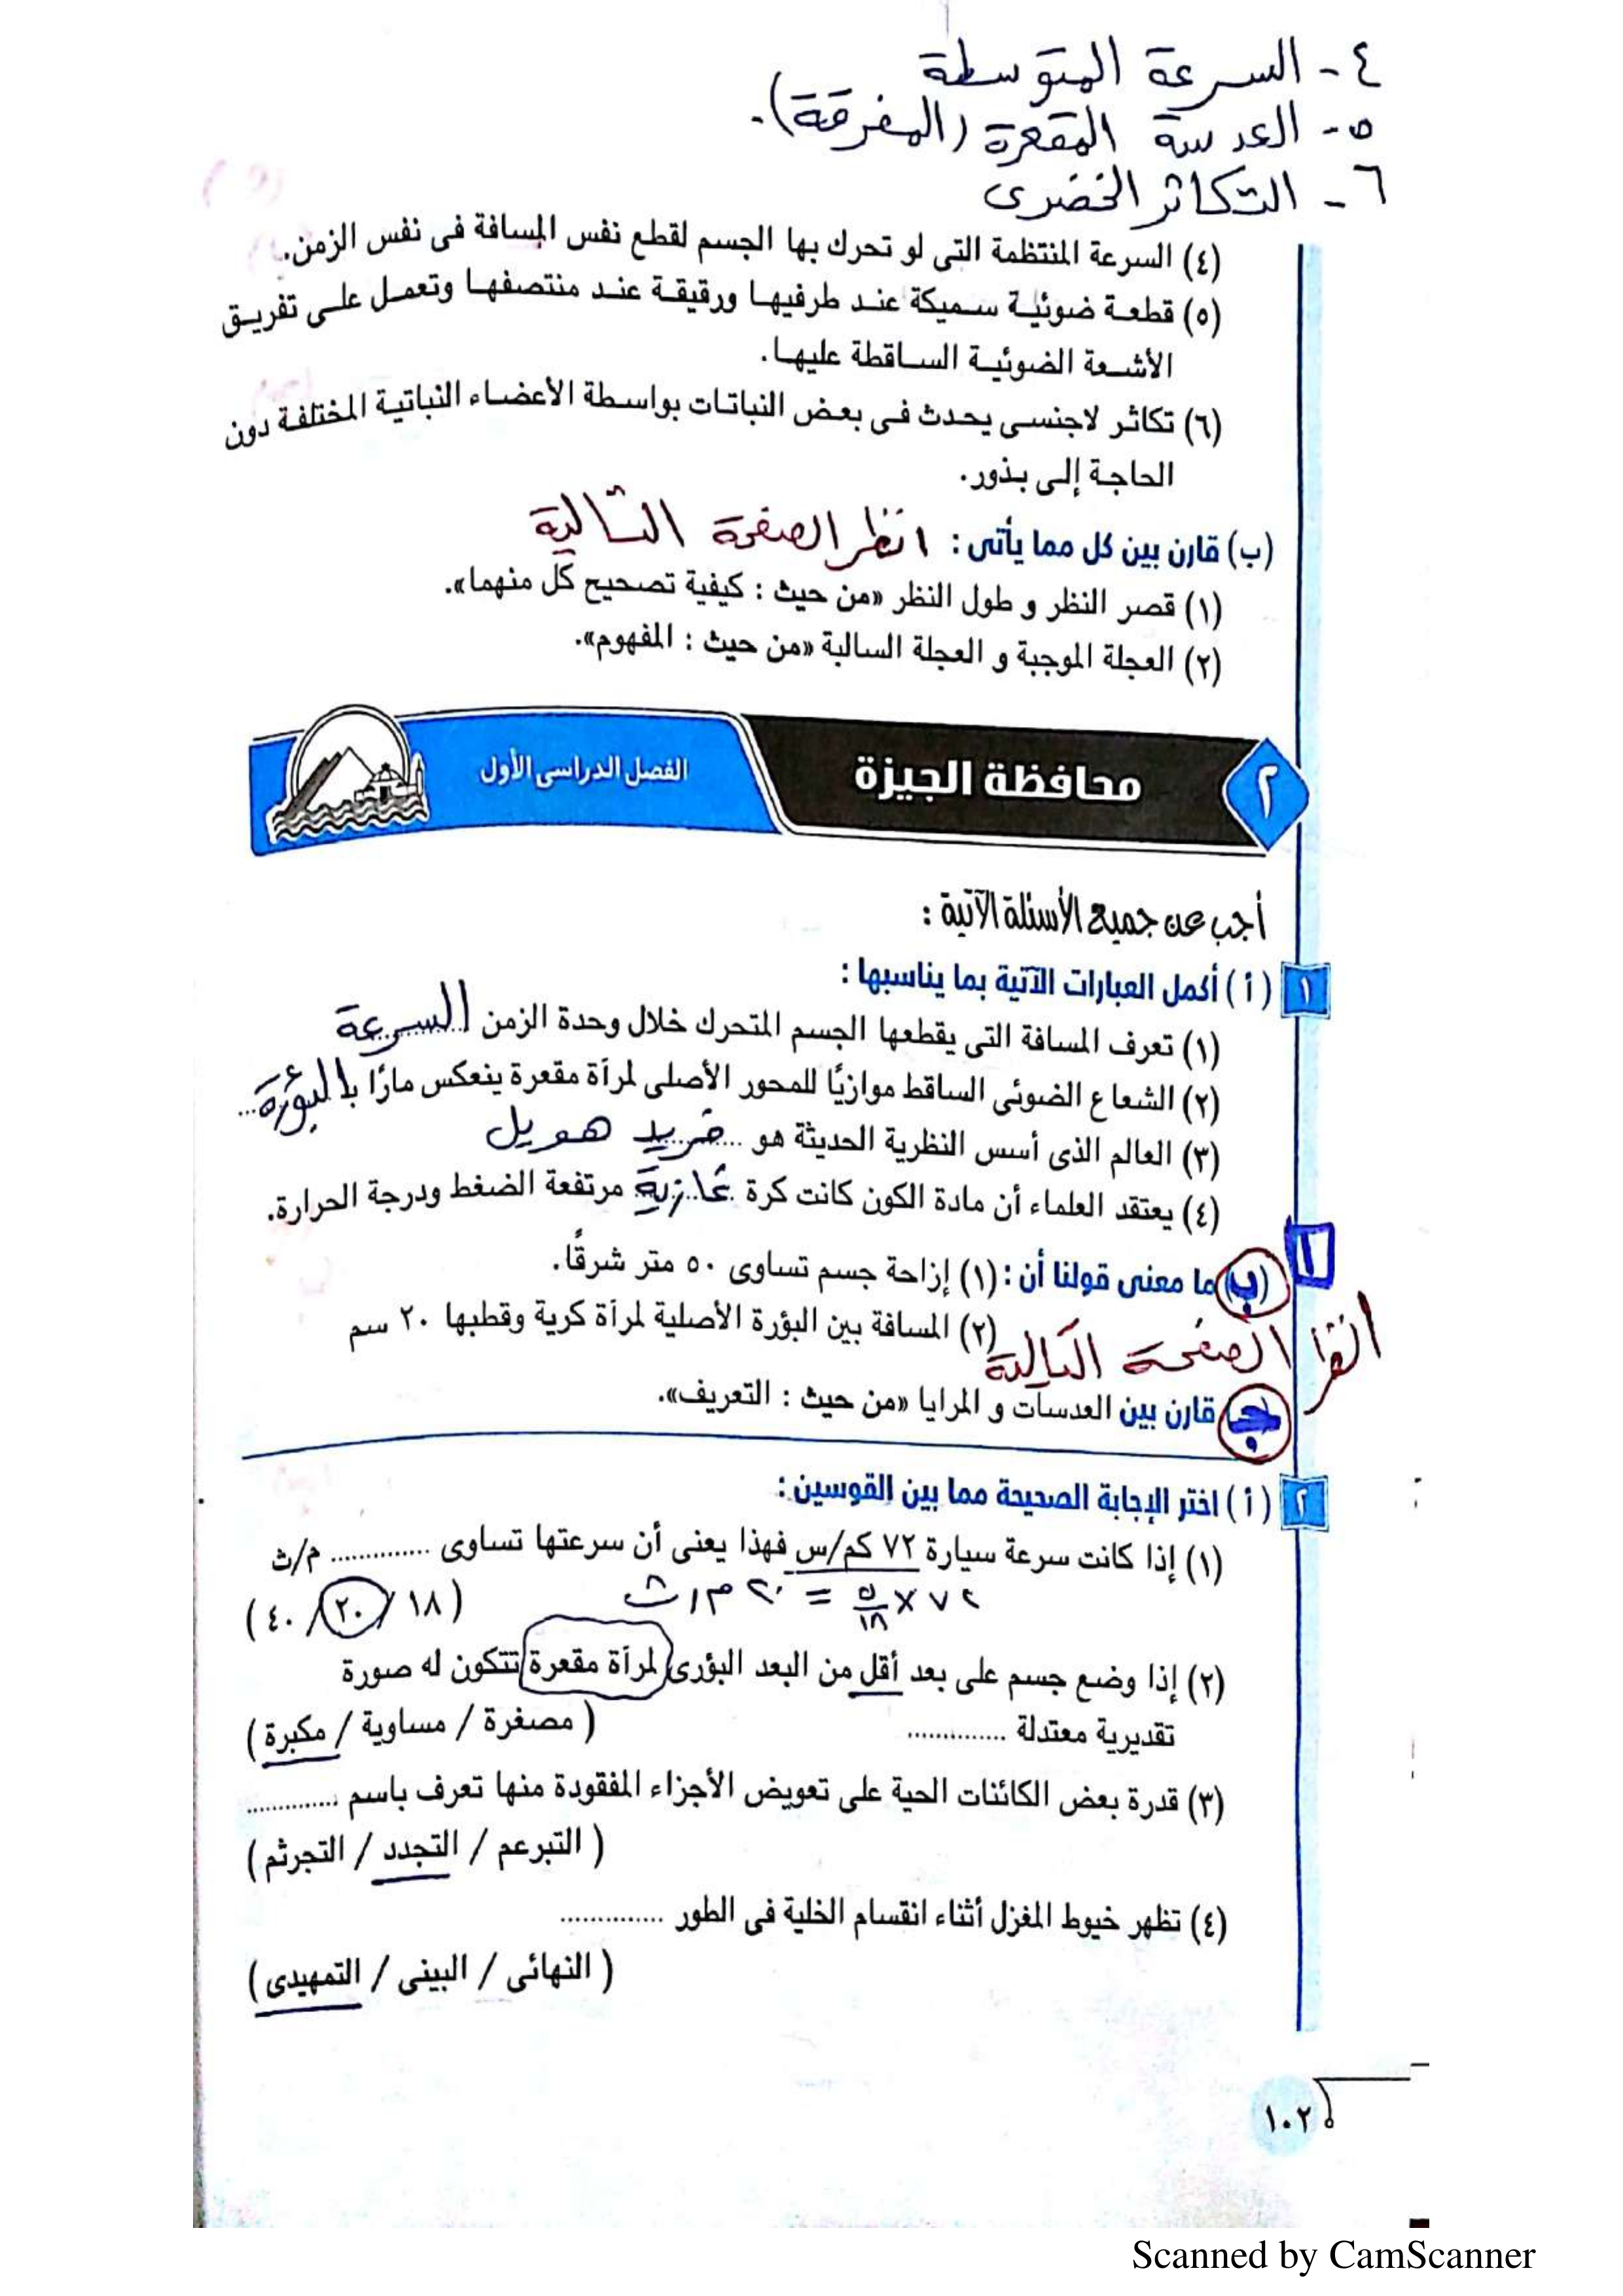 ٤- السرعة المتوسطة
٥- العدسة المقعرة (المفرقة).
٦- التكاثر الخضرى
(٤) السرعة المنتظمة التى لو تحرك بها الجسم لقطع نفس المسافة فى نفس الزمن.
(٥) قطعة ضوئية سميكة عند طرفيها ورقيقة عند منتصفها وتعمل على تفريق
الأشعة الضوئية الساقطة عليها.
(٦) تكاثر لاجنسى يحدث فى بعض النباتات بواسطة الأعضاء النباتية المختلفة دون
الحاجة إلى بذور.
(ب) قارن بين كل مما يأتى : انظر الصفحة التالية
(١) قصر النظر و طول النظر «من حيث : كيفية تصحيح كل منهما».
(٢) العجلة الموجبة و العجلة السالبة «من حيث : المفهوم».
٢ محافظة الجيزة الفصل الدراسى الأول
أجب عن جميع الأسئلة الآتية :
١ (أ) أكمل العبارات الآتية بما يناسبها :
(١) تعرف المسافة التى يقطعها الجسم المتحرك خلال وحدة الزمن السرعة
(٢) الشعاع الضوئى الساقط موازيًا للمحور الأصلى لمرآة مقعرة ينعكس مارًا بالبؤرة
(٣) العالم الذى أسس النظرية الحديثة هو فريد هويل
(٤) يعتقد العلماء أن مادة الكون كانت كرة غازية مرتفعة الضغط ودرجة الحرارة.
١ (ب) ما معنى قولنا أن : (١) إزاحة جسم تساوى ٥٠ متر شرقًا.
(٢) المسافة بين البؤرة الأصلية لمرآة كرية وقطبها ٢٠ سم
انظر الصفحة التالية
(جـ) قارن بين العدسات و المرايا «من حيث : التعريف».
٢ (أ) اختر الإجابة الصحيحة مما بين القوسين :
(١) إذا كانت سرعة سيارة ٧٢ كم/س فهذا يعنى أن سرعتها تساوى .............. م/ث
(١٨ / ٢٠ / ٤٠)
٧٢ × ٥/١٨ = ٢٠ م/ث
(٢) إذا وضع جسم على بعد أقل من البعد البؤرى لمرآة مقعرة تتكون له صورة
تقديرية معتدلة .............. (مصغرة / مساوية / مكبرة)
(٣) قدرة بعض الكائنات الحية على تعويض الأجزاء المفقودة منها تعرف باسم .............
(التبرعم / التجدد / التجرثم)
(٤) تظهر خيوط المغزل أثناء انقسام الخلية فى الطور ..............
(النهائى / البينى / التمهيدى)
١٠٢
Scanned by CamScanner